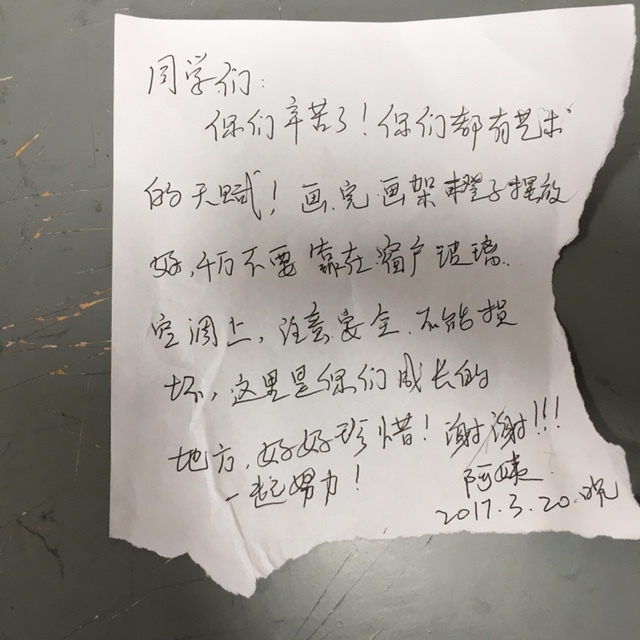 同学们：
你们辛苦了！你们都有艺术
的天赋！画完画架凳子摆放
好，千万不要靠在窗户玻璃、
空调上，注意安全、不能损
坏，这里是你们成长的
地方，好好珍惜！谢谢！！！
一起努力！
阿姨
2017.3.20.晚